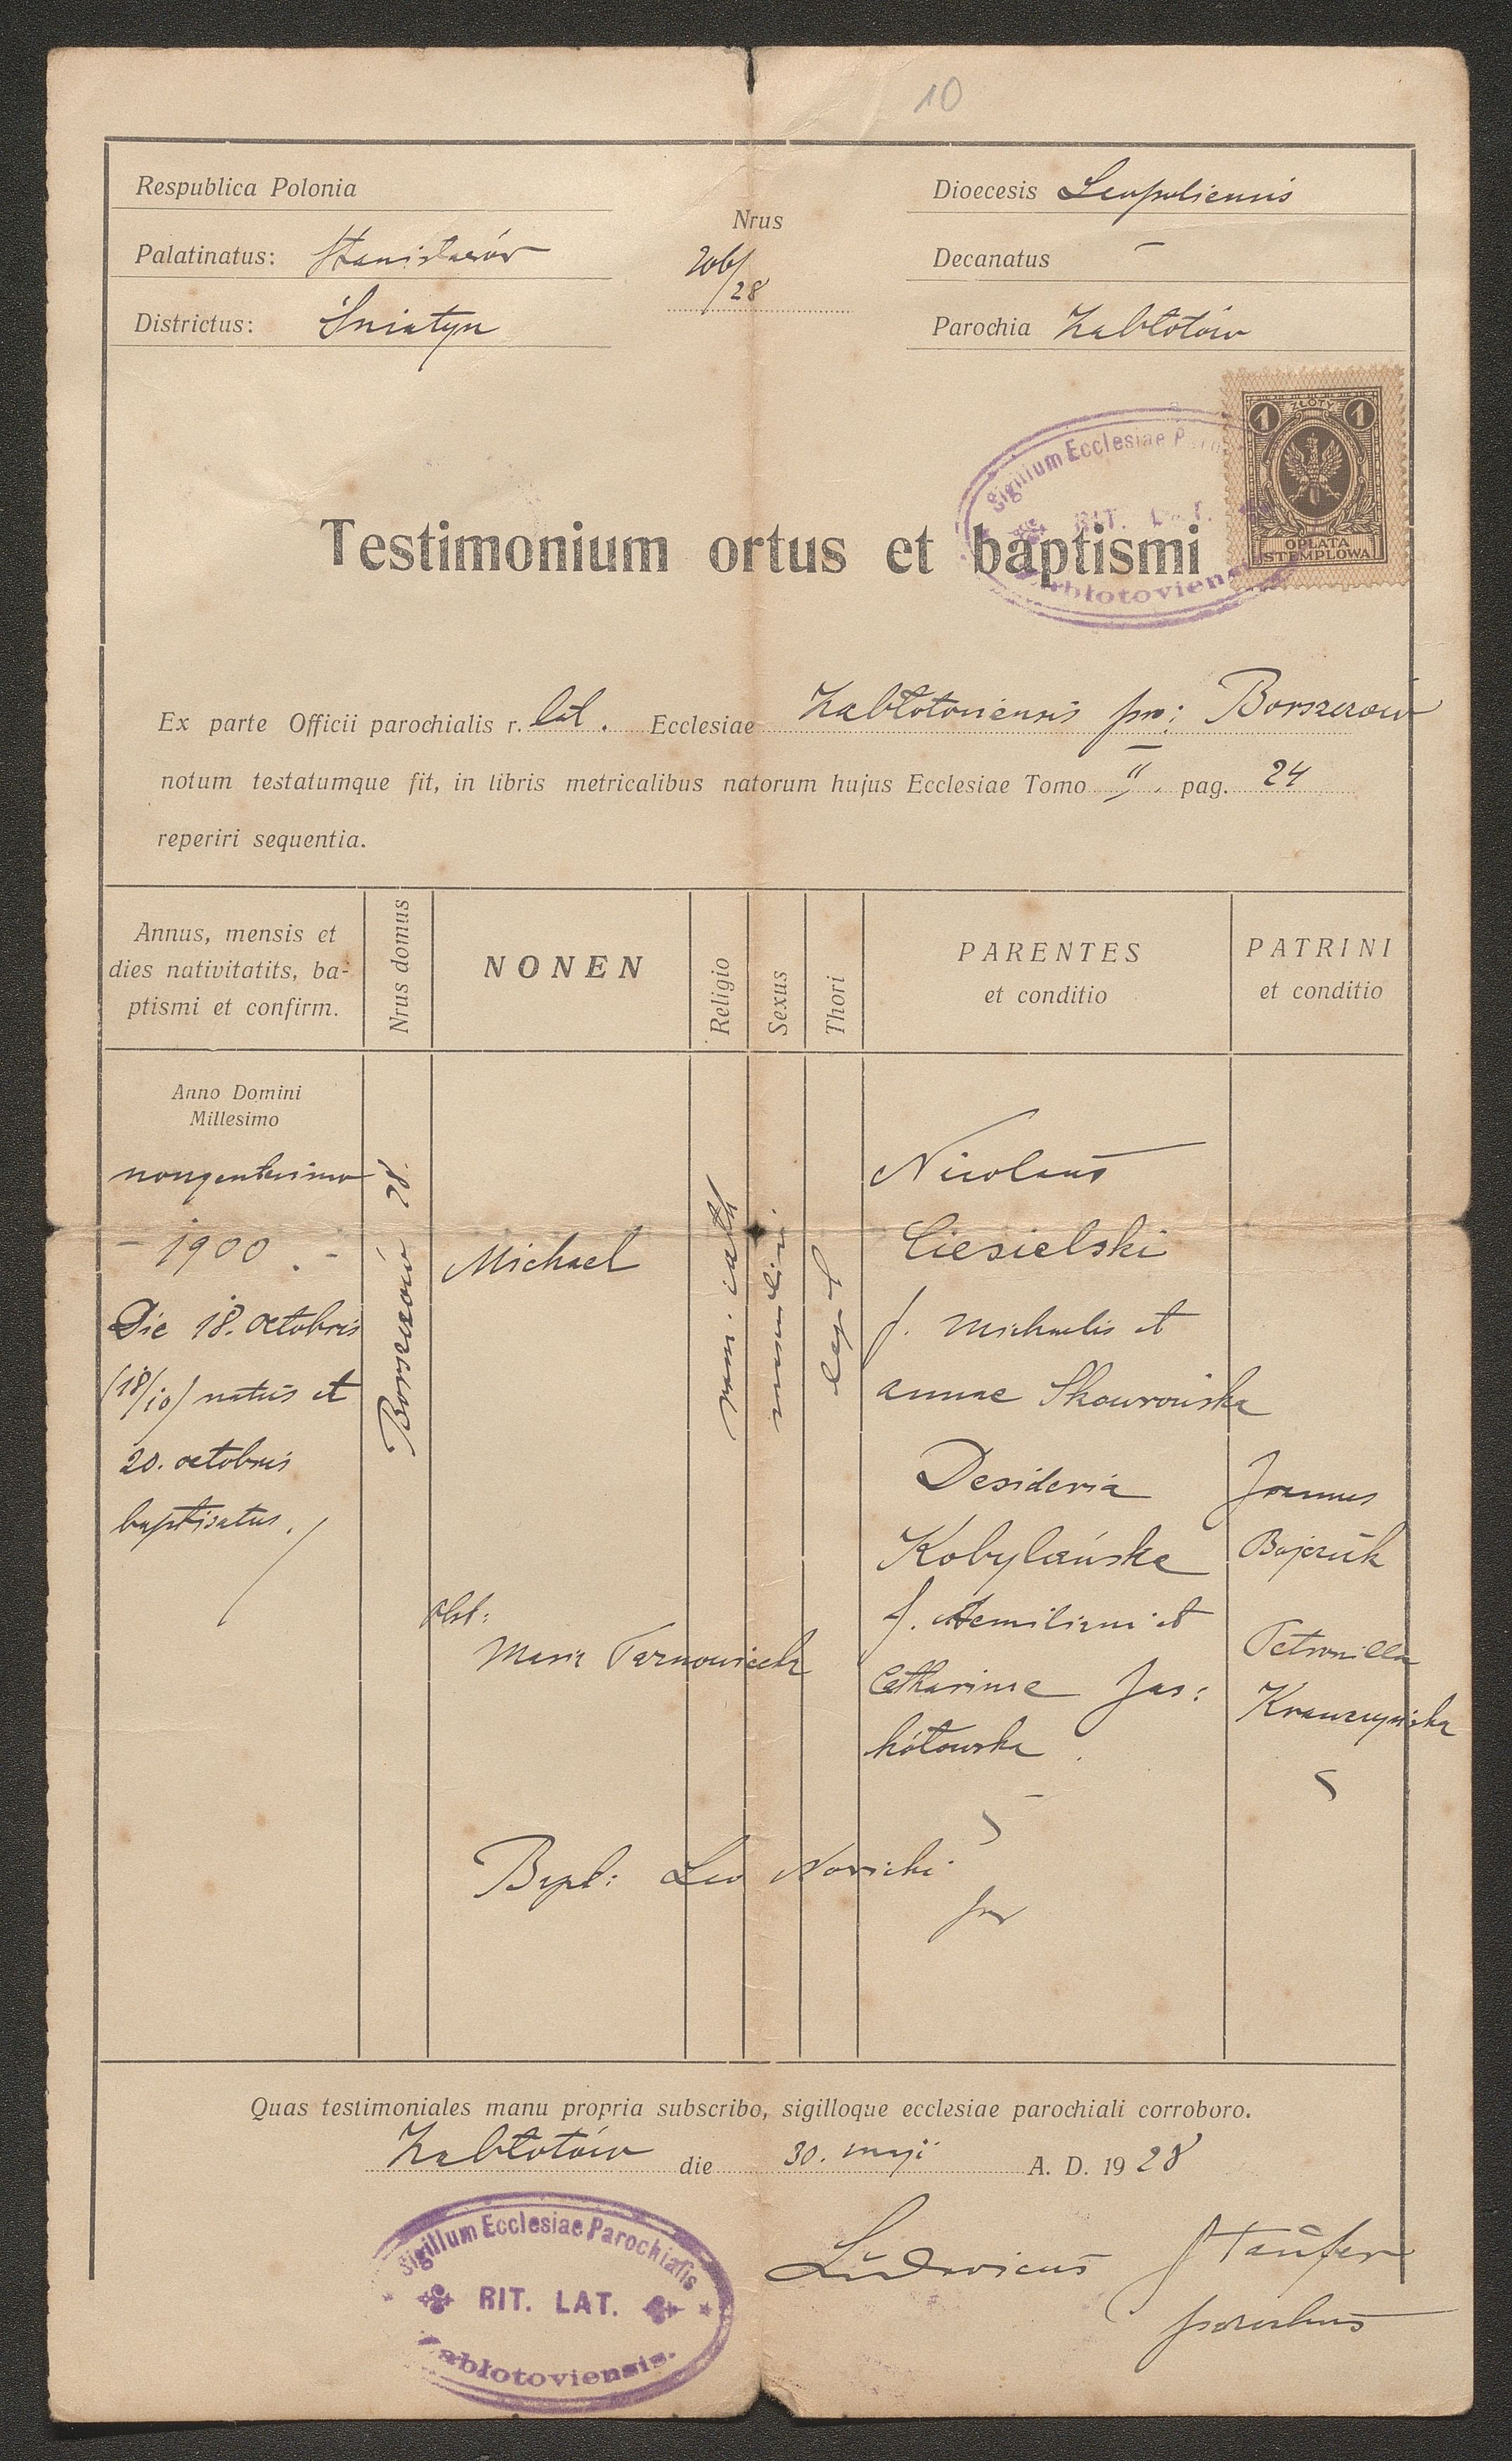 10
Respublica Polonia
Palatinatus: Stanisławów
Districtus: Śniatyn
Nrus
206/28
Dioecesis Leopoliensis
Decanatus —
Parochia Zabłotów
1 ZŁOTY 1
OPŁATA
STEMPLOWA
Sigillum Ecclesiae
RIT. LAT.
Testimonium ortus et baptismi
Ex parte Officii parochialis r. lat. Ecclesiae Zabłotoviensis pro: Borszczów
notum testatumque fit, in libris metricalibus natorum hujus Ecclesiae Tomo II. pag. 24
reperiri sequentia.
Annus, mensis et
dies nativitatits, ba-
ptismi et confirm.
Nrus domus
NONEN
Religio
Sexus
Thori
PARENTES
et conditio
PATRINI
et conditio
Anno Domini
Millesimo
nongentesimo
- 1900 -
Die 18. octobris
(18/10) natus et
20. octobris
baptisatus.
Borszczów 28.
Michael
Obst:
Maria
rom. cath
masculin.
leg. t.
Nicolaus
Ciesielski
f. Michaelis et
Annae Skowrońska
Desideria
Kobylańska
f. Aemiliani et
Catharinae Jas:
kółowska
Joannes
Bojczuk
Petronilla
Krawczyńska
Bapt: Leo Nowicki
Quas testimoniales manu propria subscribo, sigilloque ecclesiae parochiali corroboro.
Zabłotów die 30. maji A. D. 1928
Sigillum Ecclesiae Parochialis
RIT. LAT.
Zabłotoviensis.
Ludovicus
parochus